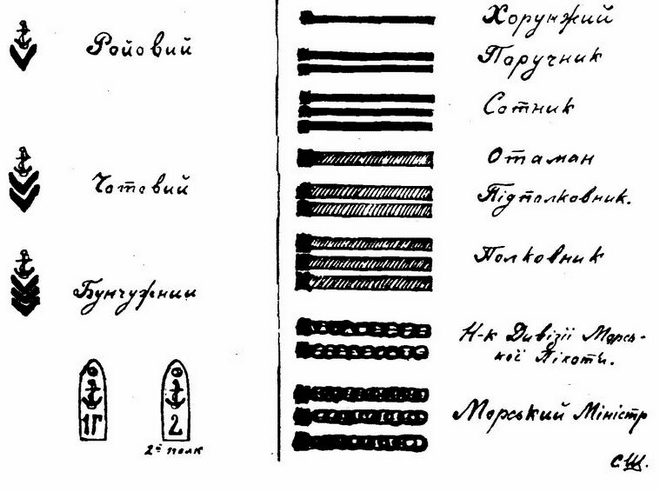 Ройовий
Чотовий
Бунчужний
1Г
2
2й полк
Хорунжий
Поручник
Сотник
Отаман
Підполковник.
Полковник
Н-к Дивізії Морсь-
кої Піхоти.
Морський Міністр
СШ.